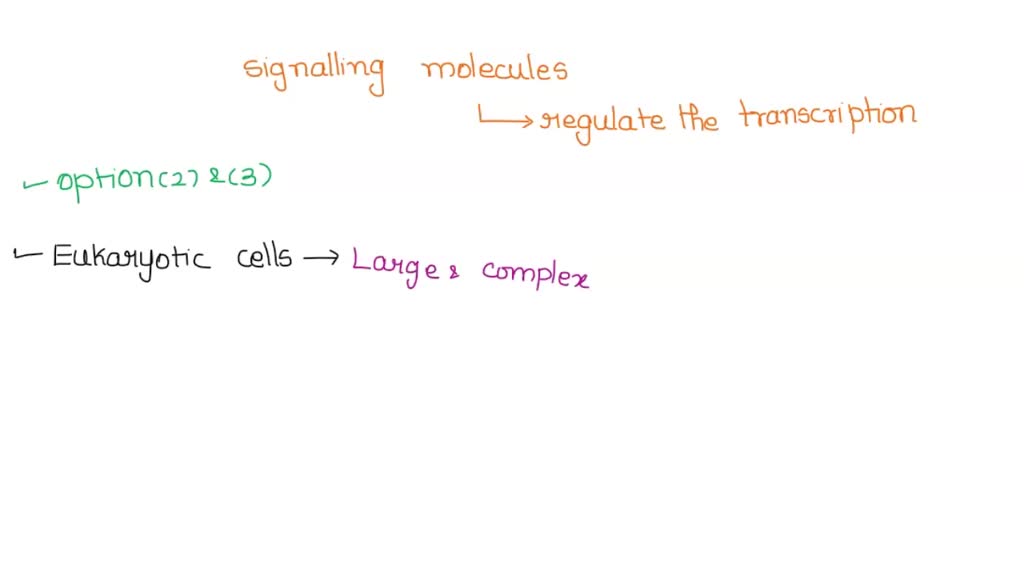 signalling molecules
↳ regulate the transcription
✓ option(2) & (3)
✓ Eukaryotic cells → Large & complex